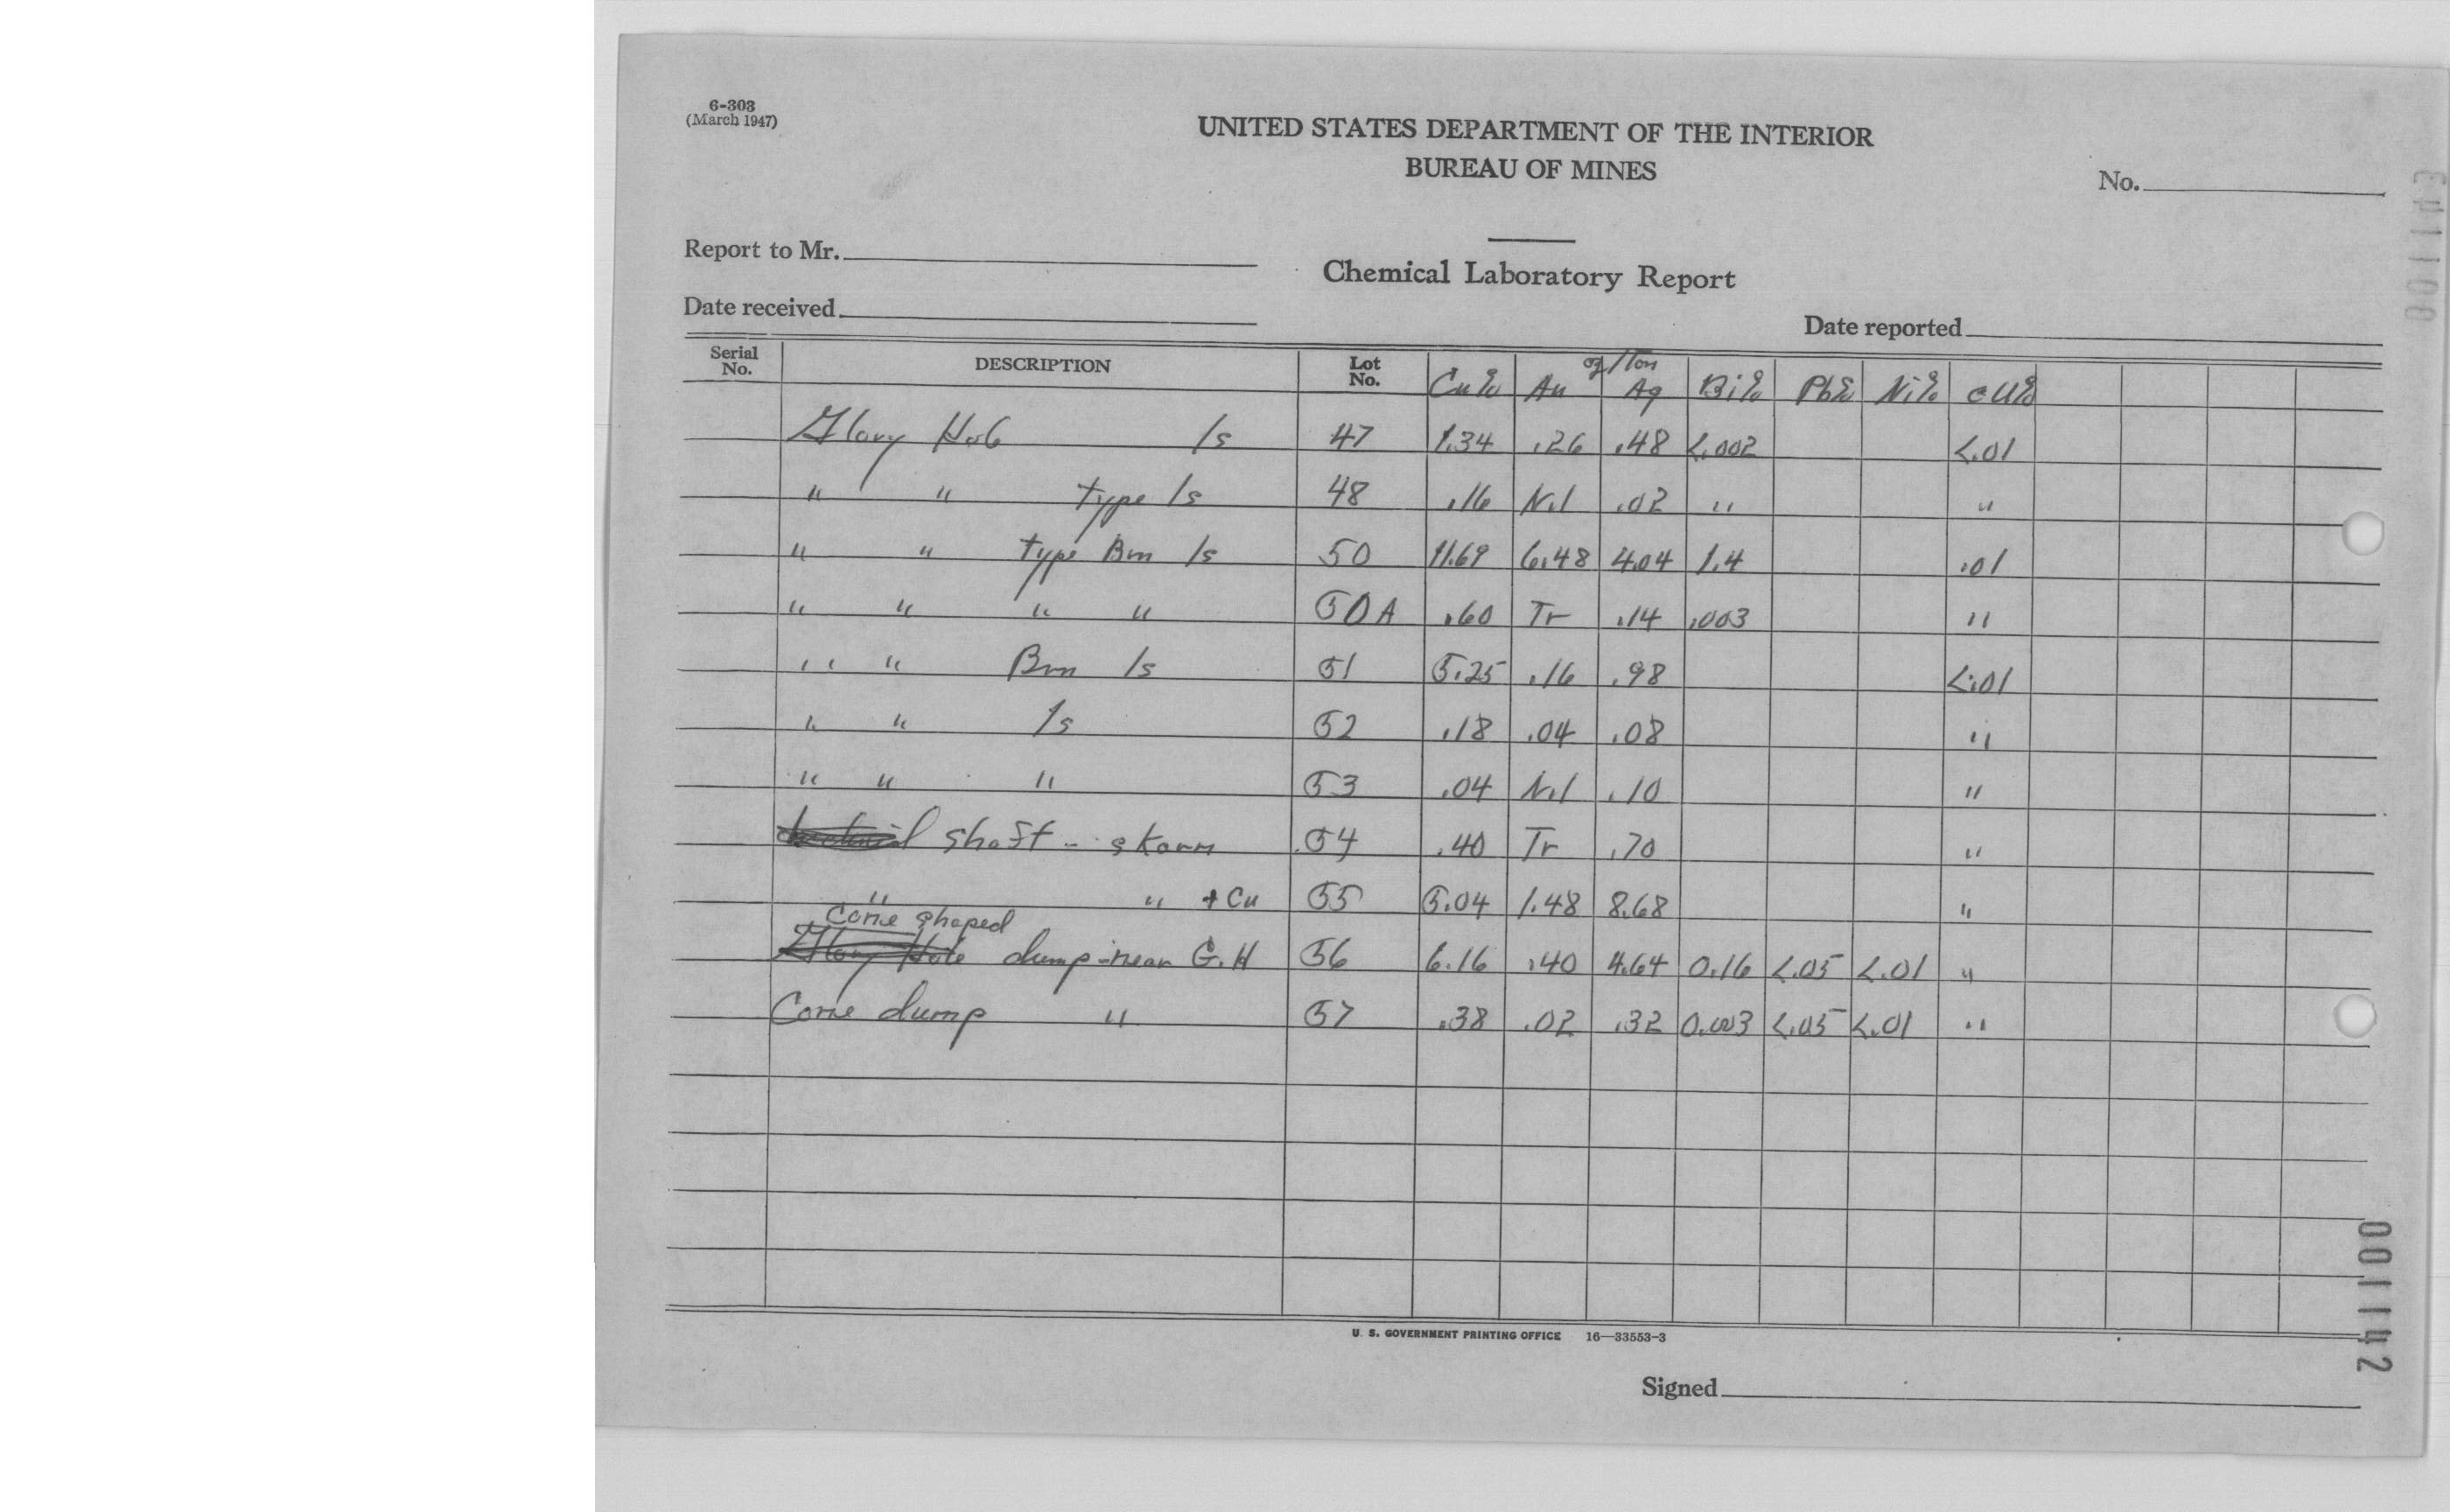 6-303
(March 1947)
UNITED STATES DEPARTMENT OF THE INTERIOR
BUREAU OF MINES
No.
Report to Mr.
Chemical Laboratory Report
Date received
Date reported
Serial No. DESCRIPTION Lot No. Cu% Au oz/Ton Ag Bi% Pb% Ni% cU%
Glory Hole ls 47 1.34 .26 .48 <.002 <.01
" " type ls 48 .16 Nil .02 " "
" " type Brn ls 50 11.69 6.48 4.04 1.4 .01
" " " " 50A .60 Tr .14 .003 "
" " Brn ls 51 5.25 .16 .98 <.01
" " ls 52 .18 .04 .08 "
" " " 53 .04 Nil .10 "
shaft - skarn 54 .40 Tr .70 "
" " + Cu 55 5.04 1.48 8.68 "
Cone shaped
Glory Hole dump-near G.H 56 6.16 .40 4.64 0.16 <.05 <.01 "
Cone dump " 57 .38 .02 .32 0.003 <.05 <.01 "
U. S. GOVERNMENT PRINTING OFFICE 16—33553-3
Signed
001142
001143